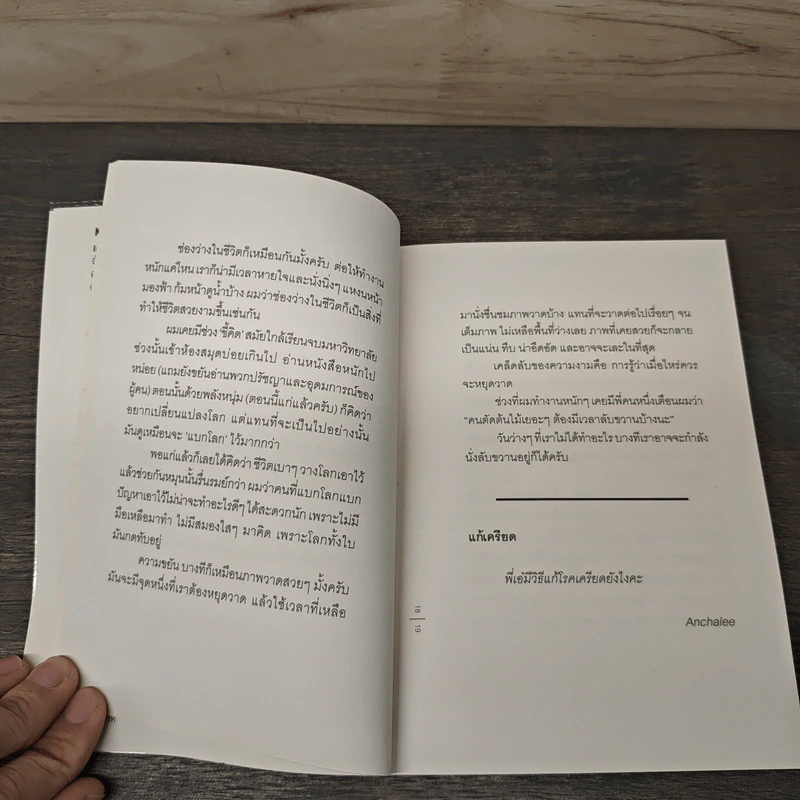 ช่องว่างในชีวิตก็เหมือนกันมั้งครับ ต่อให้ทำงาน
หนักแค่ไหน เราก็น่ามีเวลาหายใจและนั่งนิ่งๆ แหงนหน้า
มองฟ้า ก้มหน้าดูน้ำบ้าง ผมว่าช่องว่างในชีวิตก็เป็นสิ่งที่
ทำให้ชีวิตสวยงามขึ้นเช่นกัน
ผมเคยมีช่วง 'ซี้คิด' สมัยใกล้เรียนจบมหาวิทยาลัย
ช่วงนั้นเข้าห้องสมุดบ่อยเกินไป อ่านหนังสือหนักไป
หน่อย (แถมยังขยันอ่านพวกปรัชญาและอุดมการณ์ของ
ผู้คน) ตอนนั้นด้วยพลังหนุ่ม (ตอนนี้แก่แล้วครับ) ก็คิดว่า
อยากเปลี่ยนแปลงโลก แต่แทนที่จะเป็นไปอย่างนั้น
มันดูเหมือนจะ 'แบกโลก' ไว้มากกว่า
พอแก่แล้วก็เลยได้คิดว่า ชีวิตเบาๆ วางโลกเอาไว้
แล้วช่วยกันหมุนนั้นรื่นรมย์กว่า ผมว่าคนที่แบกโลกแบก
ปัญหาเอาไว้ไม่น่าจะทำอะไรดีๆ ได้สะดวกนัก เพราะไม่มี
มือเหลือมาทำ ไม่มีสมองใสๆ มาคิด เพราะโลกทั้งใบ
มันกดทับอยู่
ความขยัน บางทีก็เหมือนภาพวาดสวยๆ มั้งครับ
มันจะมีจุดหนึ่งที่เราต้องหยุดวาด แล้วใช้เวลาที่เหลือ
18
19
มานั่งชื่นชมภาพวาดบ้าง แทนที่จะวาดต่อไปเรื่อยๆ จน
เต็มภาพ ไม่เหลือพื้นที่ว่างเลย ภาพที่เคยสวยก็จะกลาย
เป็นแน่น ทึบ น่าอึดอัด และอาจจะเละในที่สุด
เคล็ดลับของความงามคือ การรู้ว่าเมื่อไหร่ควร
จะหยุดวาด
ช่วงที่ผมทำงานหนักๆ เคยมีพี่คนหนึ่งเตือนผมว่า
"คนตัดต้นไม้เยอะๆ ต้องมีเวลาลับขวานบ้างนะ"
วันว่างๆ ที่เราไม่ได้ทำอะไร บางทีเราอาจจะกำลัง
นั่งลับขวานอยู่ก็ได้ครับ
แก้เครียด
พี่เอ๋มีวิธีแก้โรคเครียดยังไงคะ
Anchalee